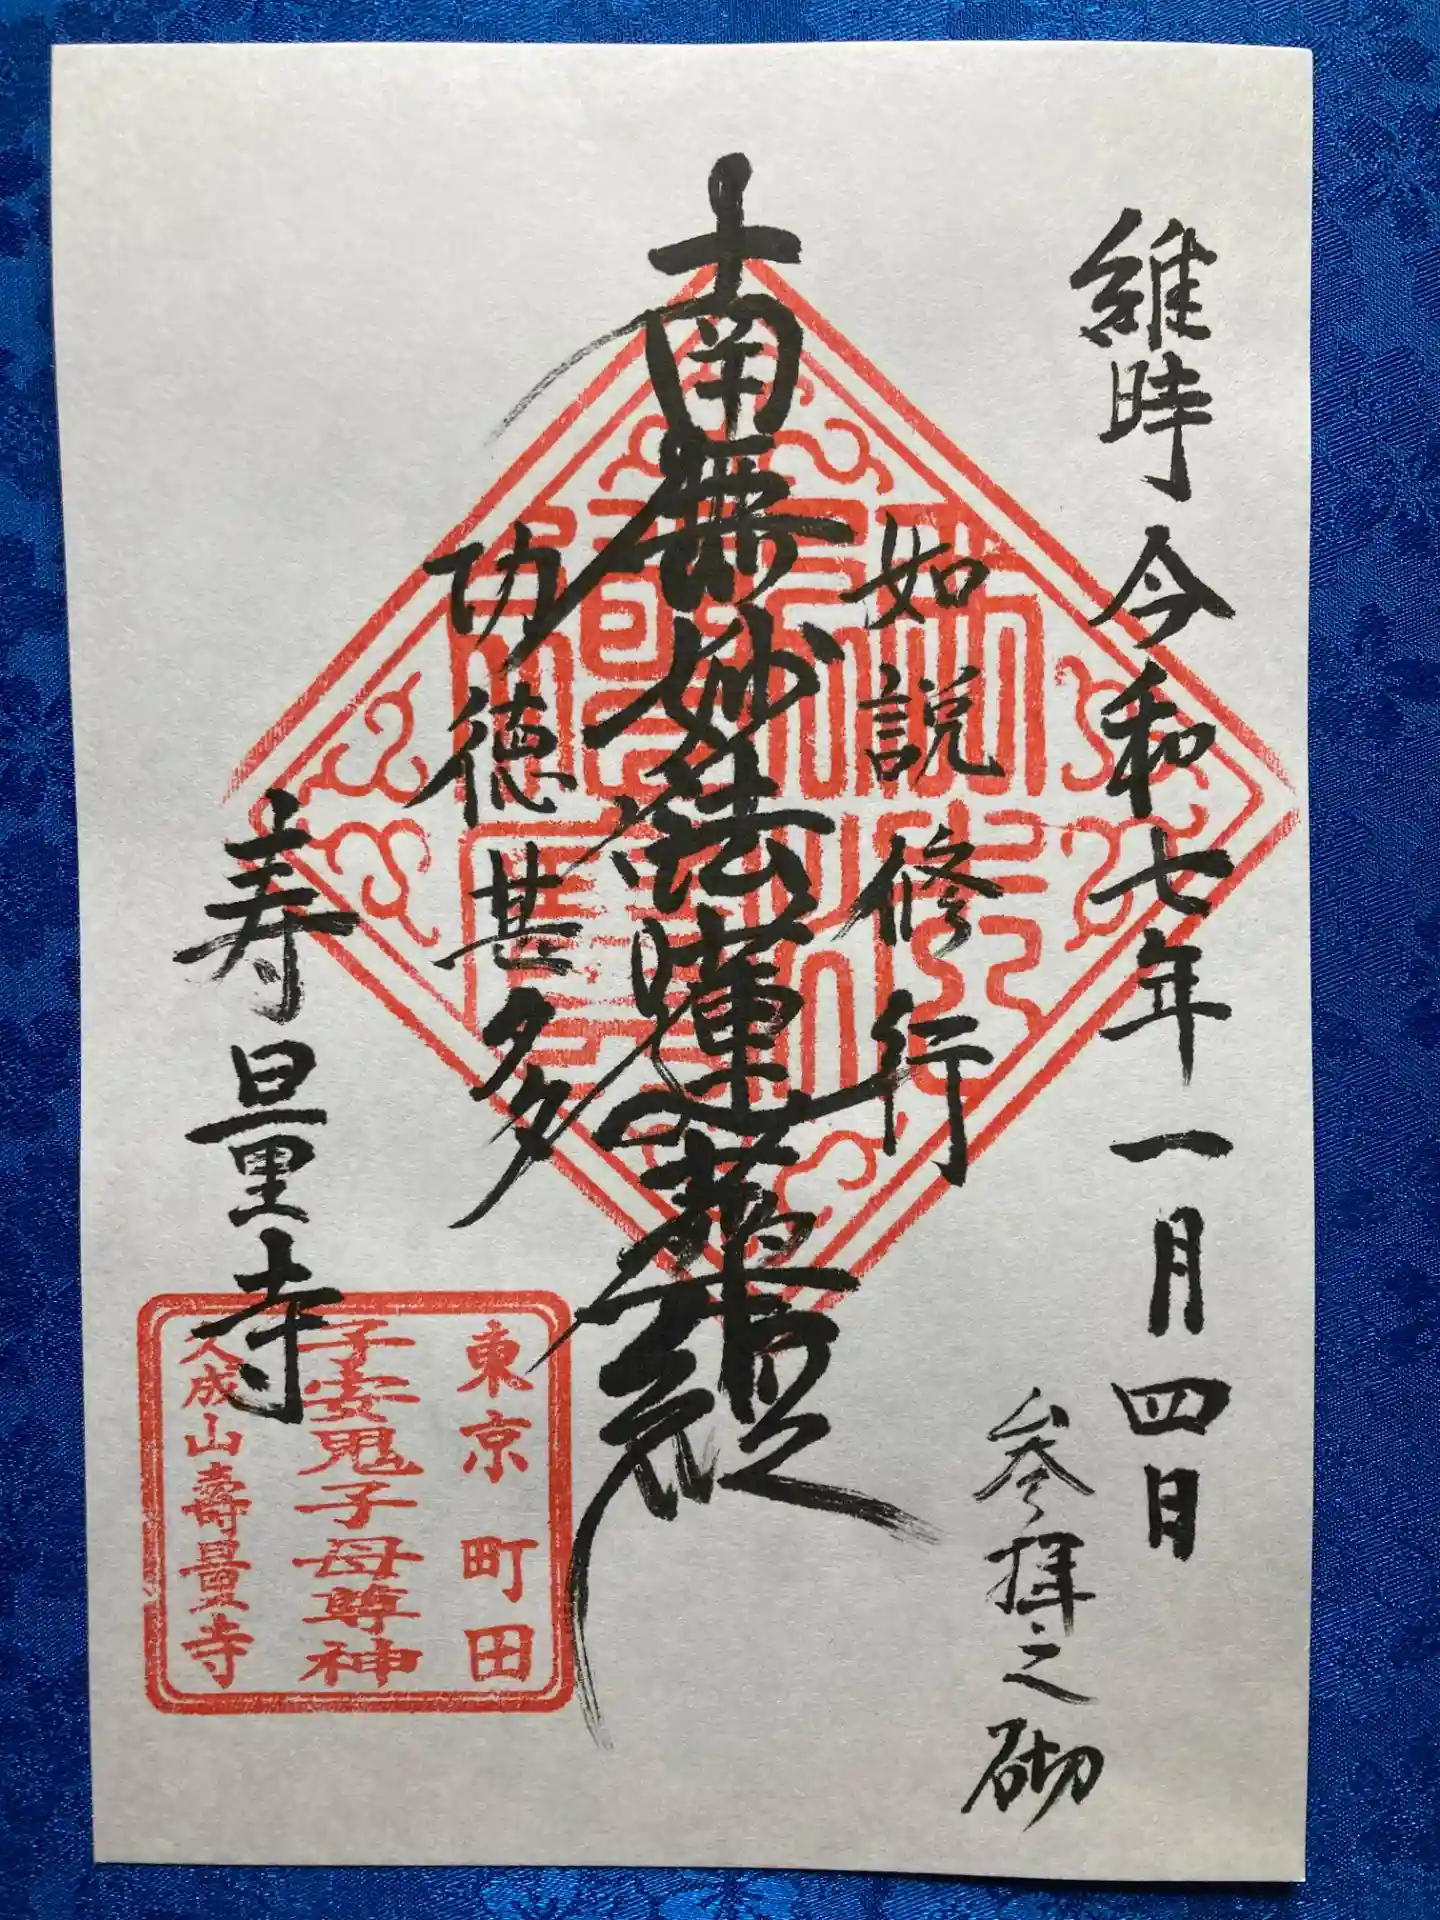 維時令和七年一月四日
参拝之砌
如説修行
南無妙法蓮華経
功徳甚多
寿量寺
東京町田
子安鬼子母尊神
久成山壽量寺